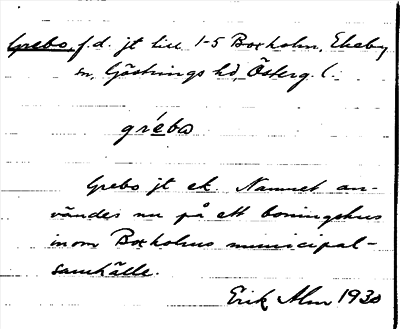 Grebo, f.d. jt till 1-5 Boxholm, Ekeby
sn, Göstrings hd, Österg. l.
gre´bo
Grebo jt ek. Namnet an-
vändes nu på ett boningshus
inom Boxholms municipal-
samhälle.
Erik Alm 1930